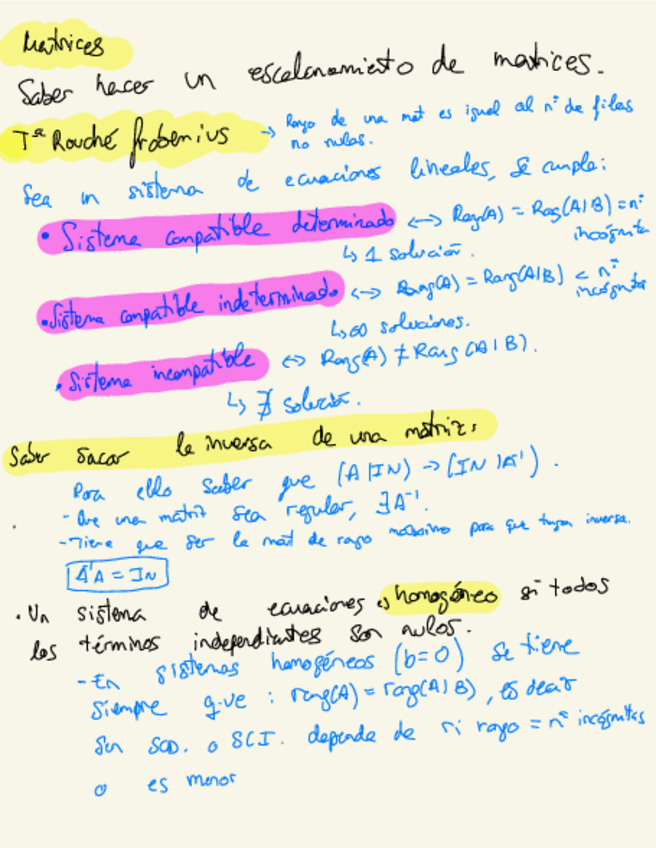 Matrices
Saber hacer un escalonamiento de matrices.
Tª Rouché frobenius → Rango de una mat es igual al nº de filas
no nulas.
Sea un sistema de ecuaciones lineales, se cumple:
• Sistema compatible determinado <-> Rang(A) = Rag(A|B) = nº
incógnita
↳ 1 solución.
• Sistema compatible indeterminado <-> Rang(A) = Rang(A|B) < nº
incógnita
↳ ∞ soluciones.
• Sistema incompatible <=> Rang(A) ≠ Rang (A|B).
↳ ∄ solución.
Saber sacar la inversa de una matriz:
Para ello saber que (A|IN) → (IN|A⁻¹).
- Que una matriz sea regular, ∃A⁻¹.
- Tiene que ser la mat de rago maximo para que tenga inversa.
A⁻¹A = IN
• Un sistema de ecuaciones es homogéneo si todos
los términos independientes son nulos.
- En sistemas homogéneos (b=0) se tiene
siempre que : rang(A) = rang(A|B), es decir
Son SCD. o SCI. depende de si rago = nº incógnitas
o es menor